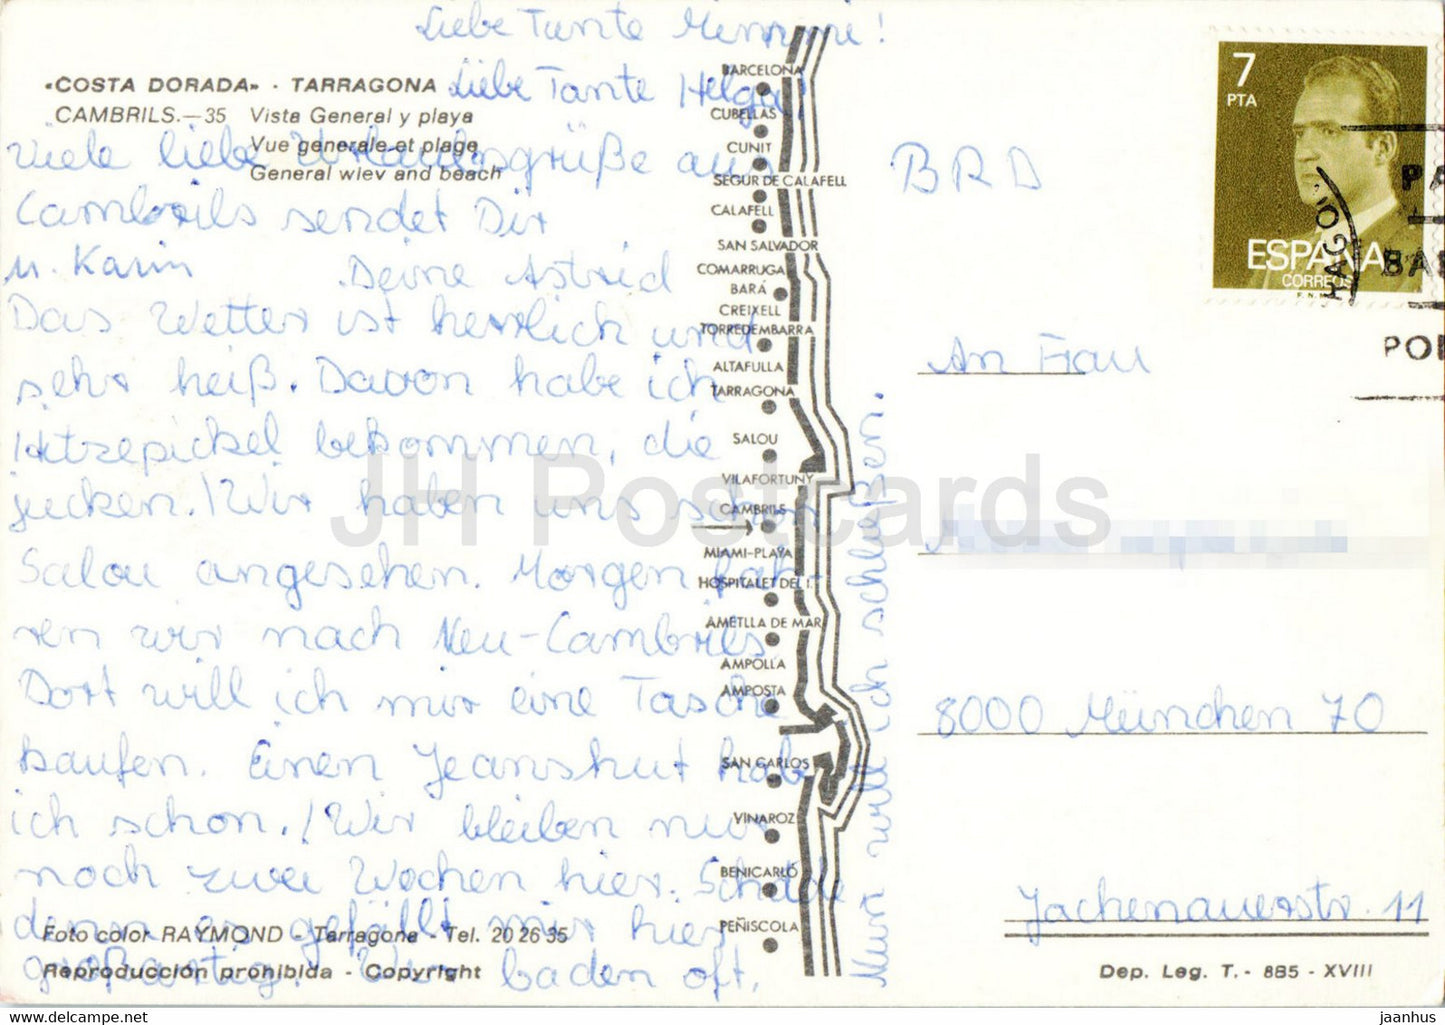 Liebe Tante Mimmi!
Liebe Tante Helga!
«COSTA DORADA» - TARRAGONA
CAMBRILS.—35 Vista General y playa
Vue generale et plage
General wiev and beach
Viele liebe Urlaubsgrüße aus
Cambrils sendet Dir
u. Karin Deine Astrid
Das Wetter ist herrlich und
sehr heiß. Davon habe ich
Hitzepickel bekommen, die
jucken. Wir haben uns schon
Salou angesehen. Morgen fah-
ren wir nach Neu-Cambrils
Dort will ich mir eine Tasche
kaufen. Einen Jeanshut habe
ich schon. Wir bleiben nur
noch zwei Wochen hier. Schade
denn es gefällt mir hier
großartig. Wir baden oft.
Nun will ich schließen.
Foto color RAYMOND - Tarragona - Tel. 20 26 35
Reproducción prohibida - Copyright
BARCELONA
CUBELLAS
CUNIT
SEGUR DE CALAFELL
CALAFELL
SAN SALVADOR
COMARRUGA
BARÁ
CREIXELL
TORREDEMBARRA
ALTAFULLA
TARRAGONA
SALOU
VILAFORTUNY
CAMBRILS
MIAMI-PLAYA
HOSPITALET DEL I.
AMETLLA DE MAR
AMPOLLA
AMPOSTA
SAN CARLOS
VINAROZ
BENICARLÓ
PEÑISCOLA
7
PTA
ESPAÑA
CORREOS
HAGO
PA
BAR
POR
BRD
An Frau
8000 München 70
Jachenauerstr. 11
Dep. Leg. T. - 885 - XVIII
JH Postcards
jaanhus.com